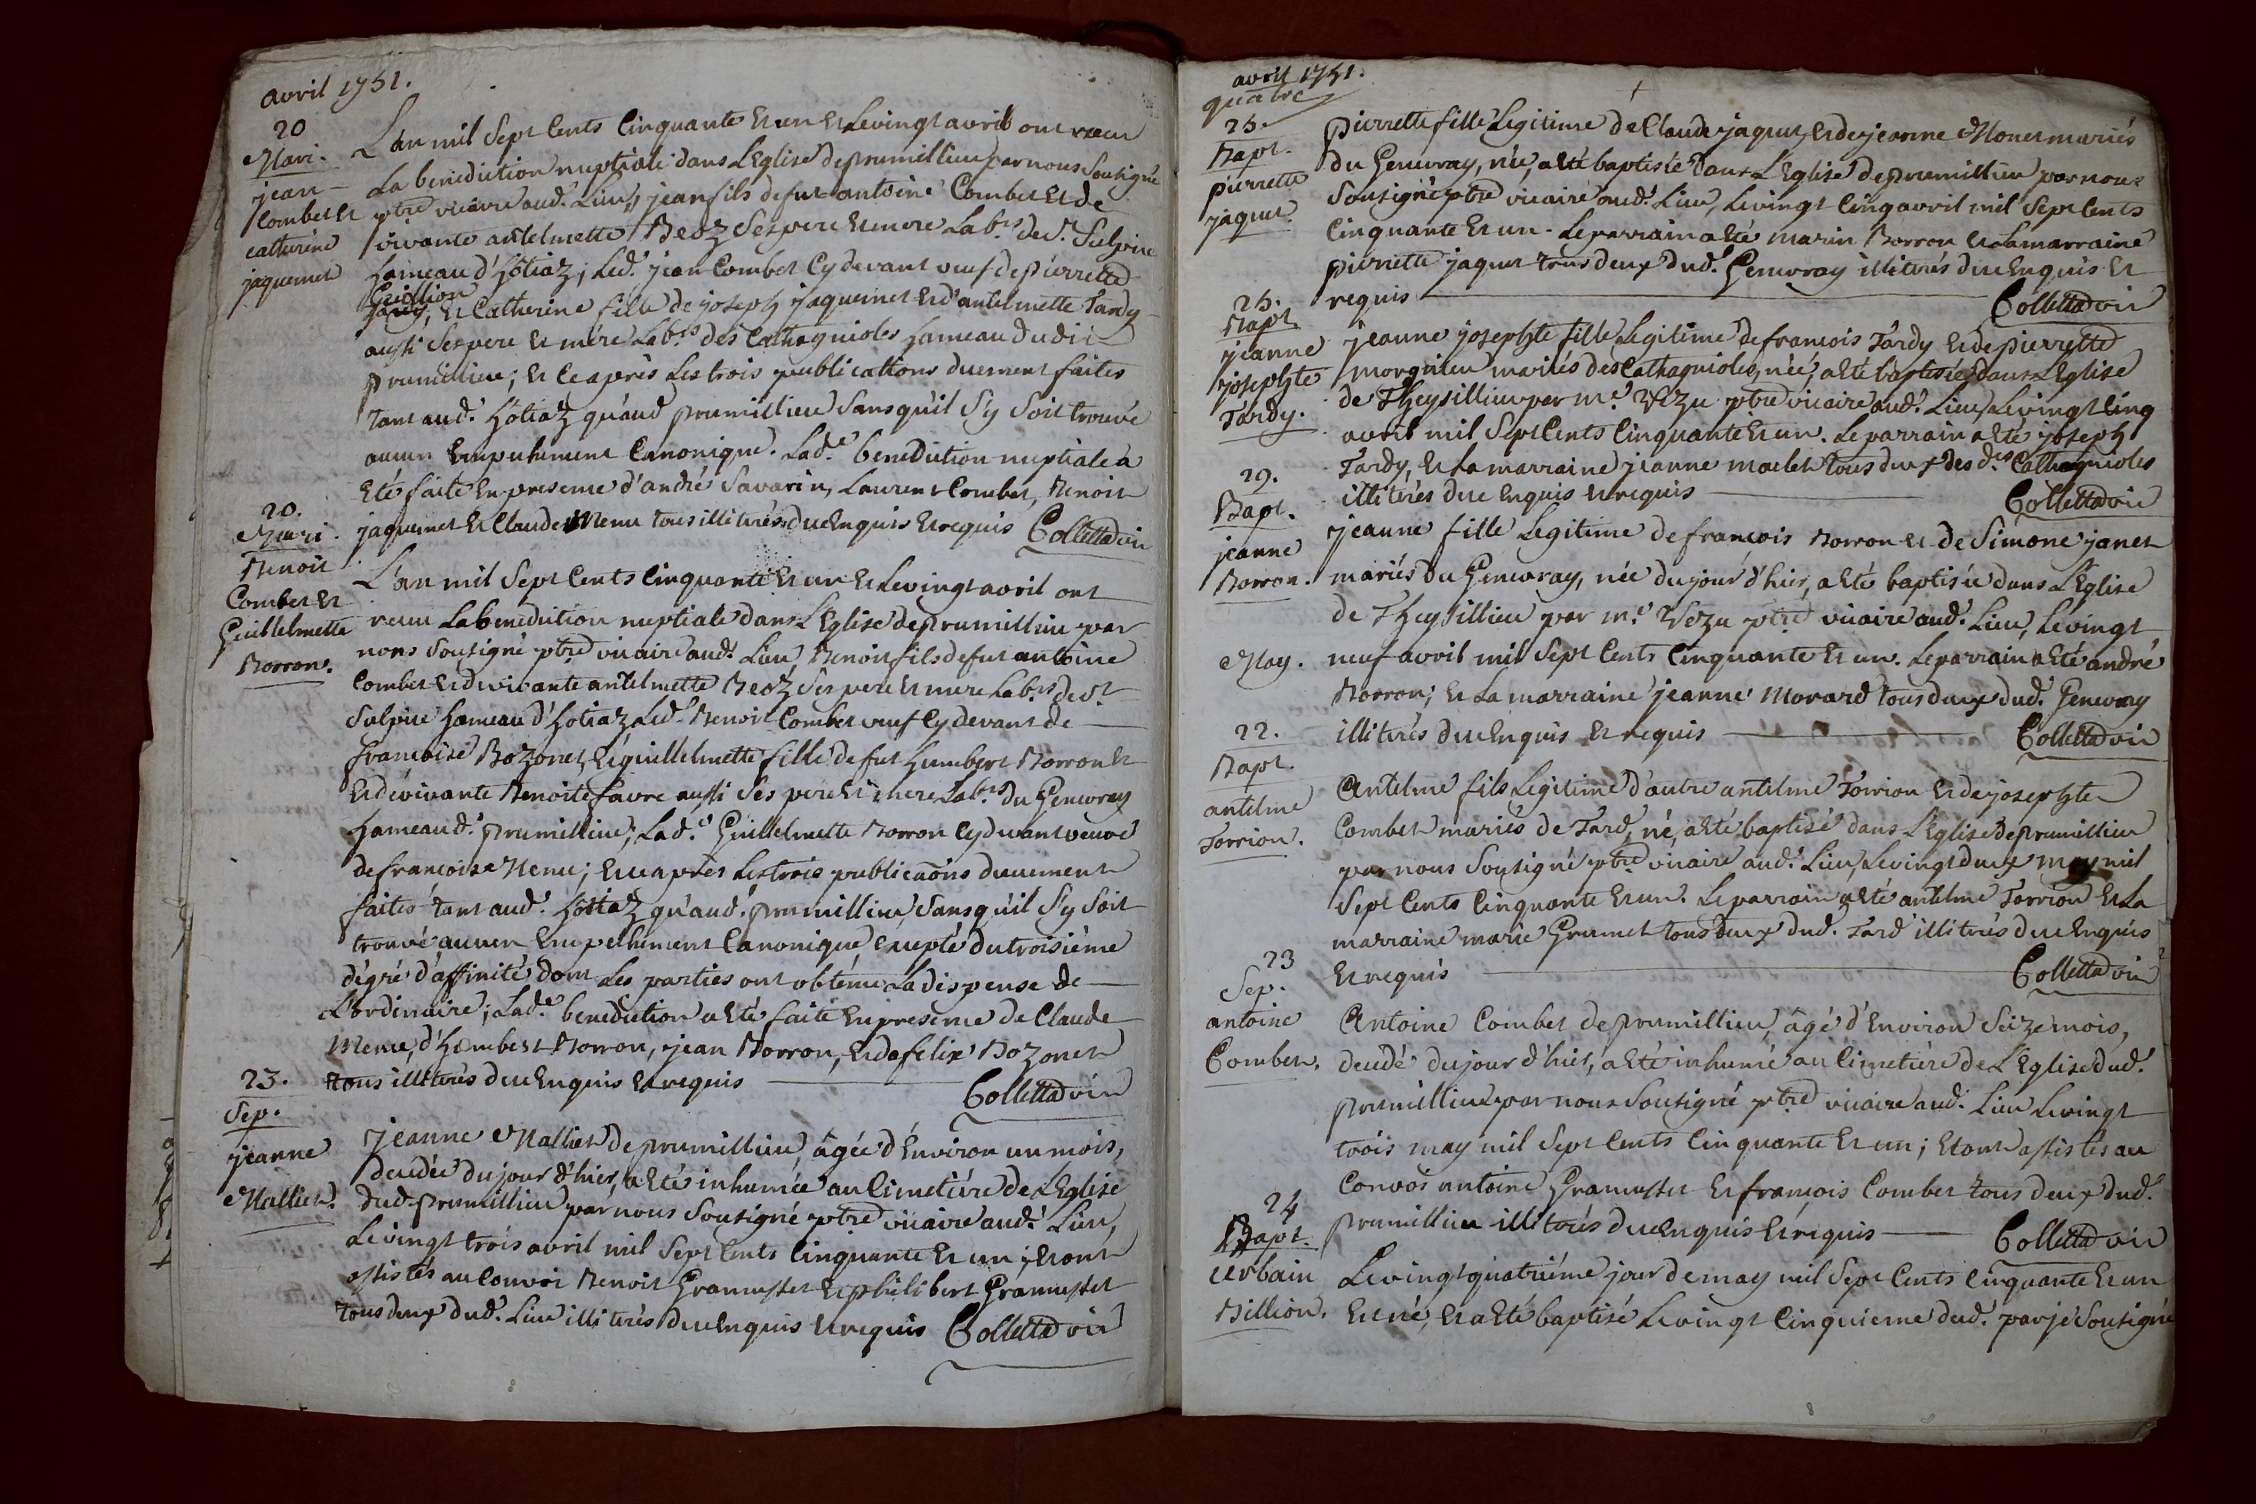 avril 1751.
20
Mari.
jean
Combet Et
catherine
jaquemet
L'an mil Sept Cents Cinquante Et un Et Le vingt avril ont recu
La benediction nuptiale dans L'Eglise de prumillieu par nous Soussigné
ptre vicaire aud.t Lieu, jean fils de fut antoine Combet Et de
vivante antelmette Beoz Ses pere Et mere Lab.rs de S.t Sulpice
hameau d'hôtiaz; Led.t jean Combet Cy devant veuf de pierrette
Guillion
Et Catherine fille de joseph jaquemet Et d'antelmette Tardy
aussi Ses pere Et mére Lab.rs des Cathagnioles hameau dudit
prumillieu; Et Ce aprés Les trois publications duement faites
tant aud.t hôtiaz qu'aud prumillieu Sans qu'il S'y Soit trouvé
aucun Empechement Canonique. Lad.e benediction nuptiale a
Eté faite En presence d'andré Savarin, Laurent Combet, Benoit
jaquemet Et Claude Menu tous illiterés du Enquis Et requis Colletta vic
20.
Mari.
Benoit
Combet Et
Guillelmette
Borron.
L'an mil Sept Cents Cinquante Et un Et Le vingt avril ont
recu La benediction nuptiale dans L'Eglise de prumillieu par
nous Sousigné ptre vicaire aud.t Lieu, Benoit fils de fut antoine
Combet Et de vivante antelmette Beoz Ses pere Et mere Lab.rs de S.t
Sulpice hameau d'hotiaz Led.t Benoit Combet veuf Cy devant de
francoise Bozonet, Et guillelmette fille de fut humbert Borron Et
Et de vivante Benoite favre aussi Ses pere Et mere Lab.rs du Genevray
hameau d.t prumillieu; Lad.e Guillelmette Borron Cy devant veuve
de francoise Menu; Et ce aprés Les trois publicaons duement
faites tant aud.t hôtiaz qu'aud.t prumillieu, Sans qu'il S'y Soit
trouvé aucun Empechement Canonique Excepté du troisiéme
dégré d'affinité dont Les parties ont obtenu La dispense de
L'ordinaire; Lad.e benediction a Eté faite En presence de Claude
Menu, d'humbert Borron, jean Borron, Et de felix Bozonet
tous illiterés du Enquis Et requis Colletta vic
23.
Sep.
jeanne
Malliet.
Jeanne Malliet de prumillieu, âgée d'Environ un mois,
decedée du jour d'hier, a Eté inhumée au Cimetiére de L'Eglise
dud. prumillieu par nous Sousigné ptre vicaire aud.t Lieu,
Le vingt trois avril mil Sept Cents Cinquante Et un; Et ont
assistés au Convoi Benoit Gramusset Et philibert Gramusset
tous deux dud.t Lieu illiterés du Enquis Et requis Colletta vic
avril 1751.
quatre
25.
Bapt.
pierrette
jaquet.
pierrette fille Legitime de Claude jaquet, Et de jeanne Monet mariés
du Genevray, née, a Eté baptisée dans L'Eglise de prumillieu par nous
Sousigné ptre vicaire aud.t Lieu, Le vingt Cinq avril mil Sept Cents
Cinquante Et un. Le parrain a Eté marin Borron Et La marraine
pierrette jaquet tous deux dud.t Genevray illiterés du Enquis Et
requis Colletta vic
25.
Bapt
jeanne
josephte
Tardy.
jeanne josephte fille Legitime de francois Tardy Et de pierrette
morgnieu mariés des Cathagnioles, née, a Eté baptisée dans L'Eglise
de Theysillieu par m.e Vezu ptre vicaire aud.t Lieu, Le vingt Cinq
avril mil Sept Cents Cinquante Et un. Le parrain a Eté joseph
Tardy, Et La marraine jeanne maclet tous deux des d.es Cathagnioles
illiterés du Enquis Et requis Colletta vic
29.
Bapt.
jeanne
Borron.
jeanne fille Legitime de francois Borron Et de Simone janet
mariés du Genevray, née du jour d'hier, a Eté baptisée dans L'Eglise
de Theysillieu par m.e Vezu ptre vicaire aud.t Lieu, Le vingt
neuf avril mil Sept Cents Cinquante Et un. Le parrain a Eté andré
Borron; Et La marraine jeanne Morard tous deux dud.t Genevray
illiterés du Enquis Et requis Colletta vic
May.
22.
Bapt.
antelme
Torrion.
Antelme fils Legitime d'autre antelme Torrion Et de josephte
Combet mariés de Tard, né, a Eté baptisé dans L'Eglise de prumillieu
par nous Sousigné ptre vicaire aud.t Lieu, Le vingt deux may mil
Sept Cents Cinquante Et un. Le parrain a Eté antelme Torrion Et La
marraine marie Grumet tous deux dud.t Tard illiterés du Enquis
Et requis Colletta vic
23
Sep.
antoine
Combet.
Antoine Combet de prumillieu, âgé d'Environ Seize mois,
decedé du jour d'hier, a Eté inhumé au Cimetiére de L'Eglise dud.t
prumillieu par nous Sousigné ptre vicaire aud.t Lieu Le vingt
trois may mil Sept Cents Cinquante Et un; Et ont assistés au
Convoi antoine Gramusset Et francois Combet tous deux dud.t
prumillieu illiterés du Enquis Et requis Colletta vic
24
Bapt.
urbain
Billion.
Le vingt quatriéme jour de may mil Sept Cents Cinquante Et un
Est né, Et a Eté baptisé Le vingt Cinquieme dud.t par je Sousigné